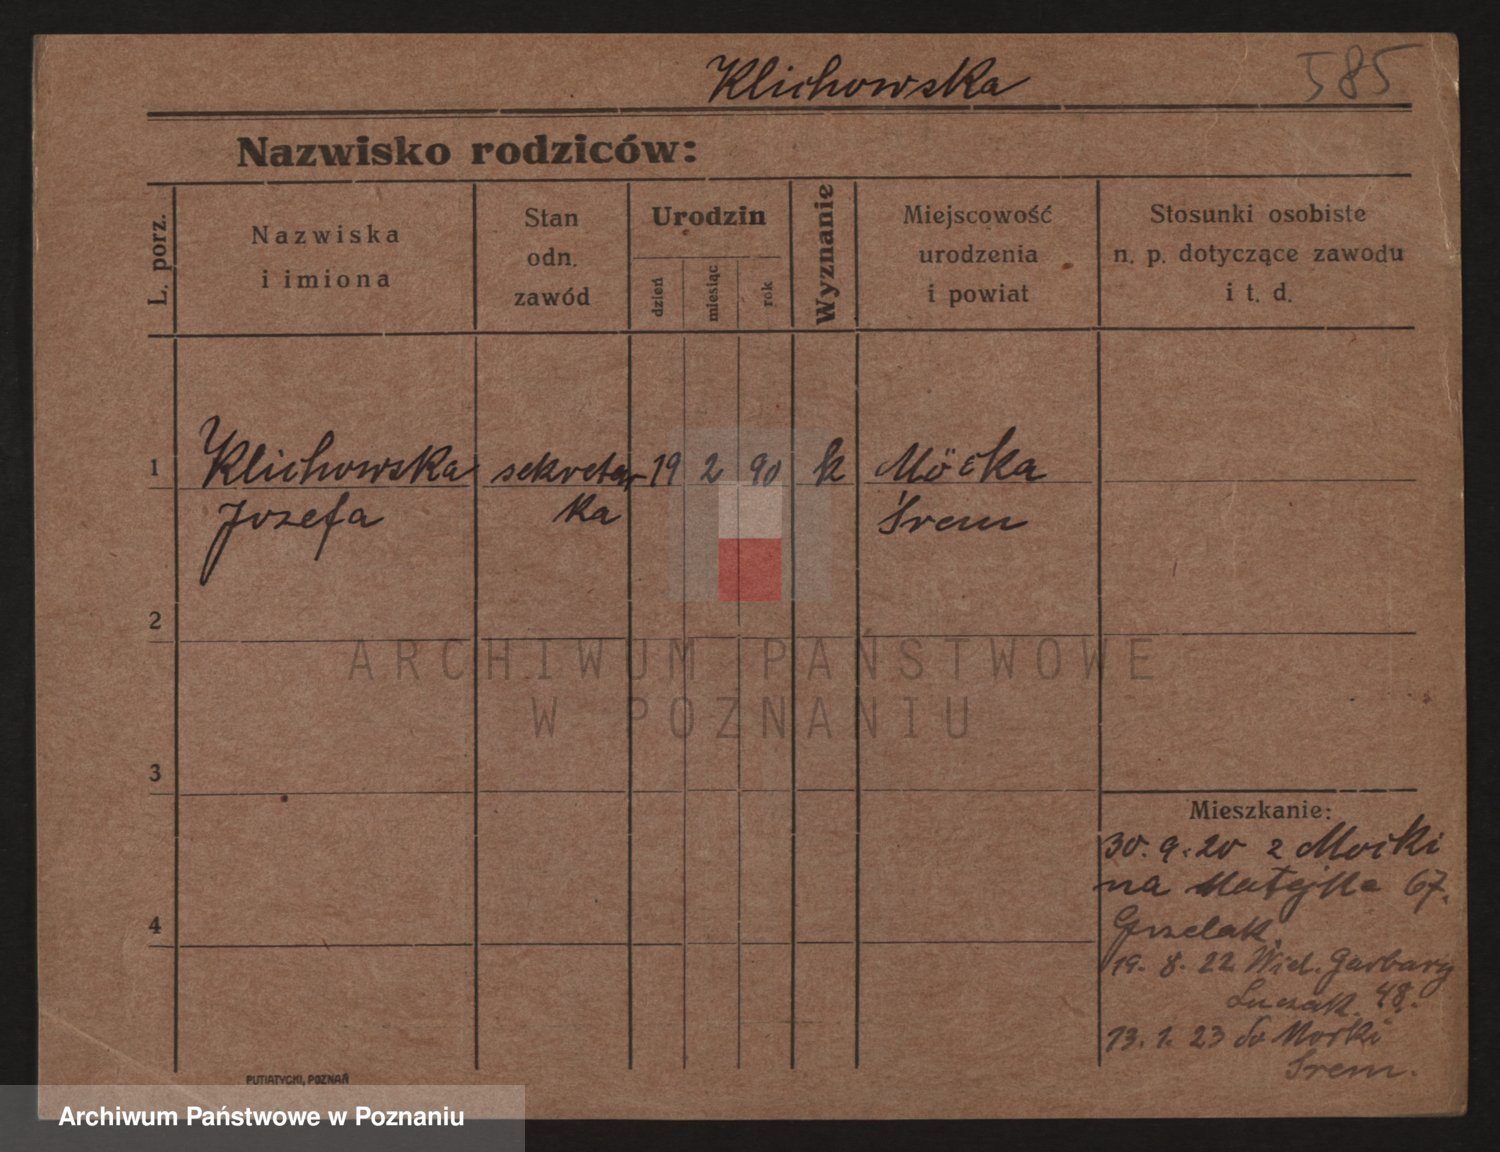 Klichowska 585
Nazwisko rodziców:
L. porz.
Nazwiska
i imiona
Stan
odn.
zawód
Urodzin
dzień
miesiąc
rok
Wyznanie
Miejscowość
urodzenia
i powiat
Stosunki osobiste
n. p. dotyczące zawodu
i t. d.
1 Klichowska sekretar- 19 2 90 k Möcka
Jozefa ka Śrem
2
ARCHIWUM PAŃSTWOWE
W POZNANIU
3
Mieszkanie:
30. 9. 20 z Mocki
na Matejki 67.
4
Grzelak
19. 8. 22 Wiel. Garbary
Luczak. 48.
13. 1. 23 do Morki
Śrem.
PUTIATYCKI, POZNAŃ
Archiwum Państwowe w Poznaniu